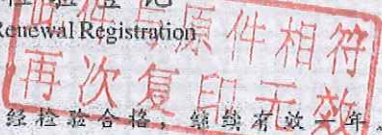 检验登记
Renewal Registration
此件与原件相符
再次复印无效
经检验合格，继续有效一年